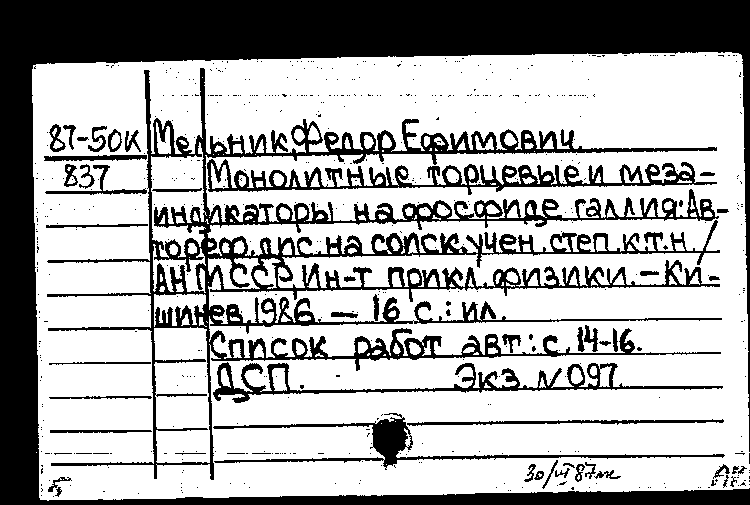 87-50К Мельник, Федор Ефимович.
837 Монолитные торцевые и меза-
индикаторы на фосфиде галлия: Ав-
тореф. дис. на соиск. учен. степ. к.т.н. /
АН МССР, Ин-т прикл. физики. — Ки-
шинев, 1986. — 16 с.: ил.
Список работ авт.: с. 14-16.
ДСП. Экз. N 097.
30/VI 87